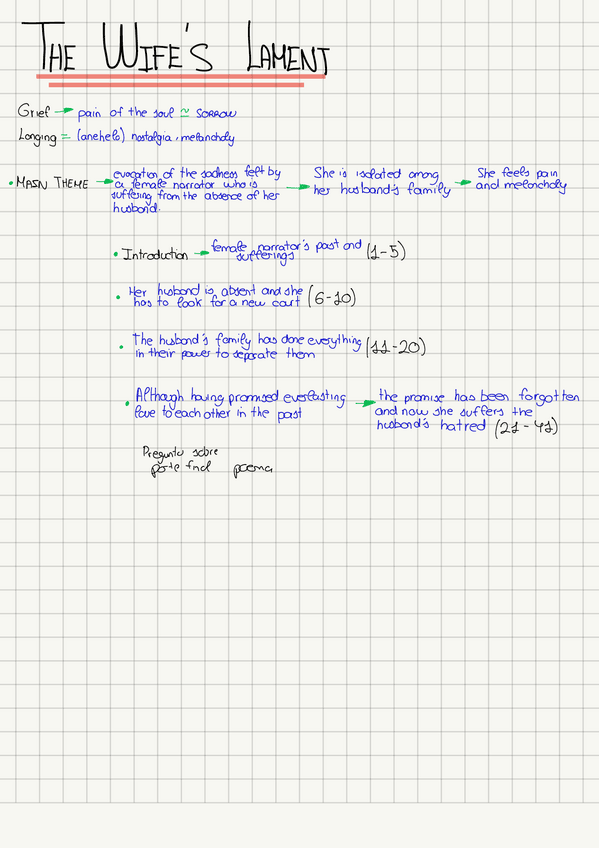 THE WIFE'S LAMENT
Grief → pain of the soul ≃ SORROW
Longing = (anehelo) nostalgia, melancholy
• MAIN THEME → evocation of the sadness felt by
a female narrator who is
suffering from the absence of her
husband.
→ She is isolated among
her husband's family
→ She feels pain
and melancholy
• Introduction → female narrator's past and
sufferings (1-5)
• Her husband is absent and she
has to look for a new court (6-10)
• The husband's family has done everything
in their power to separate them (11-20)
• Although having promised everlasting
love to each other in the past
→ the promise has been forgotten
and now she suffers the
husband's hatred (21-41)
Pregunta sobre
parte final poema